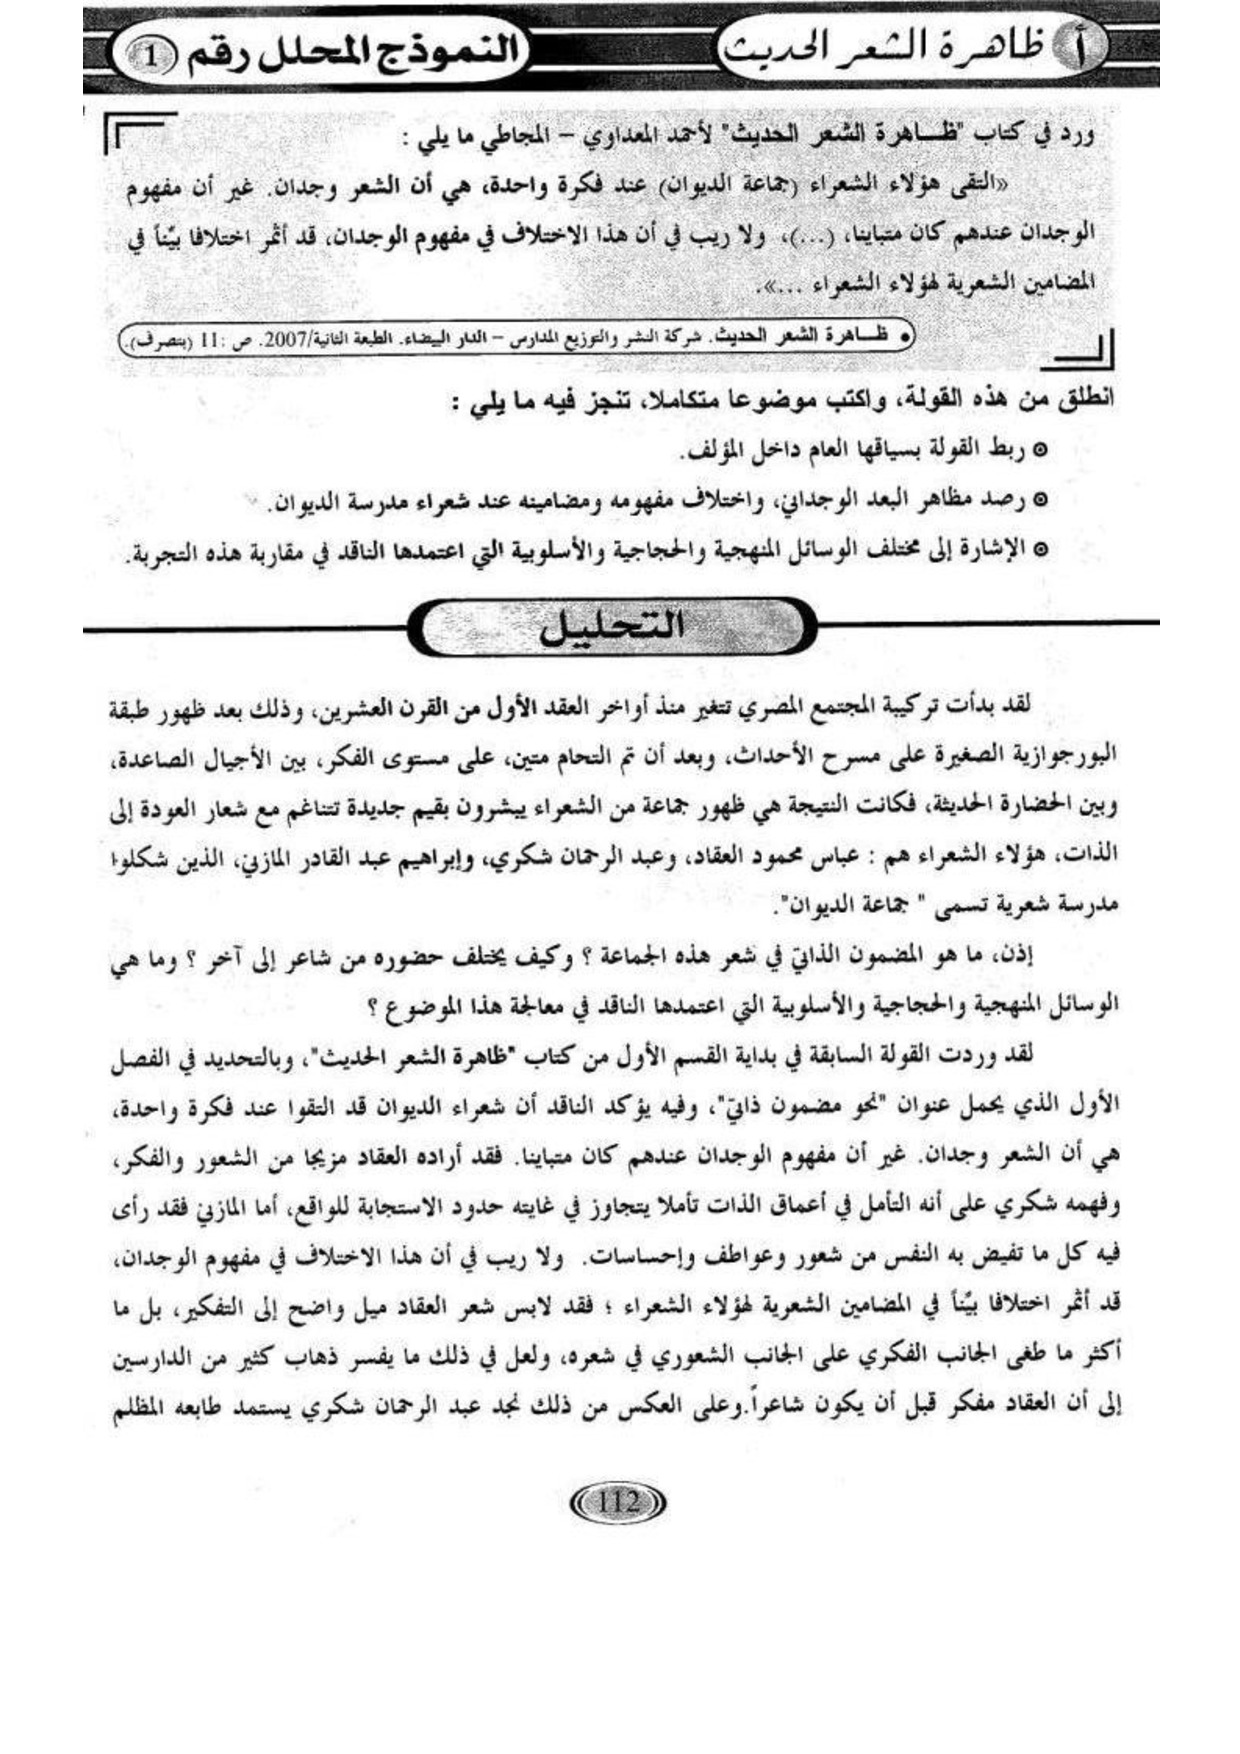 أ ظاهرة الشعر الحديث
النموذج المحلل رقم 1
ورد في كتاب "ظـــاهرة الشعر الحديث" لأحمد المعداوي – المجاطي ما يلي :
«التقى هؤلاء الشعراء (جماعة الديوان) عند فكرة واحدة، هي أن الشعر وجدان. غير أن مفهوم
الوجدان عندهم كان متباينا، (...)، ولا ريب في أن هذا الاختلاف في مفهوم الوجدان، قد أثمر اختلافا بيّناً في
المضامين الشعرية لهؤلاء الشعراء ...».
• ظـــاهرة الشعر الحديث. شركة النشر والتوزيع المدارس – الدار البيضاء. الطبعة الثانية/2007. ص :11 (بتصرف).
انطلق من هذه القولة، واكتب موضوعا متكاملا، تنجز فيه ما يلي :
⊙ ربط القولة بسياقها العام داخل المؤلف.
⊙ رصد مظاهر البعد الوجداني، واختلاف مفهومه ومضامينه عند شعراء مدرسة الديوان.
⊙ الإشارة إلى مختلف الوسائل المنهجية والحجاجية والأسلوبية التي اعتمدها الناقد في مقاربة هذه التجربة.
التحليل
لقد بدأت تركيبة المجتمع المصري تتغير منذ أواخر العقد الأول من القرن العشرين، وذلك بعد ظهور طبقة
البورجوازية الصغيرة على مسرح الأحداث، وبعد أن تم التحام متين، على مستوى الفكر، بين الأجيال الصاعدة،
وبين الحضارة الحديثة، فكانت النتيجة هي ظهور جماعة من الشعراء يبشرون بقيم جديدة تتناغم مع شعار العودة إلى
الذات، هؤلاء الشعراء هم : عباس محمود العقاد، وعبد الرحمان شكري، وإبراهيم عبد القادر المازني، الذين شكلوا
مدرسة شعرية تسمى " جماعة الديوان".
إذن، ما هو المضمون الذاتي في شعر هذه الجماعة ؟ وكيف يختلف حضوره من شاعر إلى آخر ؟ وما هي
الوسائل المنهجية والحجاجية والأسلوبية التي اعتمدها الناقد في معالجة هذا الموضوع ؟
لقد وردت القولة السابقة في بداية القسم الأول من كتاب "ظاهرة الشعر الحديث"، وبالتحديد في الفصل
الأول الذي يحمل عنوان "نحو مضمون ذاتي"، وفيه يؤكد الناقد أن شعراء الديوان قد التقوا عند فكرة واحدة،
هي أن الشعر وجدان. غير أن مفهوم الوجدان عندهم كان متباينا. فقد أراده العقاد مزيجا من الشعور والفكر،
وفهمه شكري على أنه التأمل في أعماق الذات تأملا يتجاوز في غايته حدود الاستجابة للواقع، أما المازني فقد رأى
فيه كل ما تفيض به النفس من شعور وعواطف وإحساسات. ولا ريب في أن هذا الاختلاف في مفهوم الوجدان،
قد أثمر اختلافا بيّناً في المضامين الشعرية لهؤلاء الشعراء ؛ فقد لابس شعر العقاد ميل واضح إلى التفكير، بل ما
أكثر ما طغى الجانب الفكري على الجانب الشعوري في شعره، ولعل في ذلك ما يفسر ذهاب كثير من الدارسين
إلى أن العقاد مفكر قبل أن يكون شاعراً.وعلى العكس من ذلك نجد عبد الرحمان شكري يستمد طابعه المظلم
112